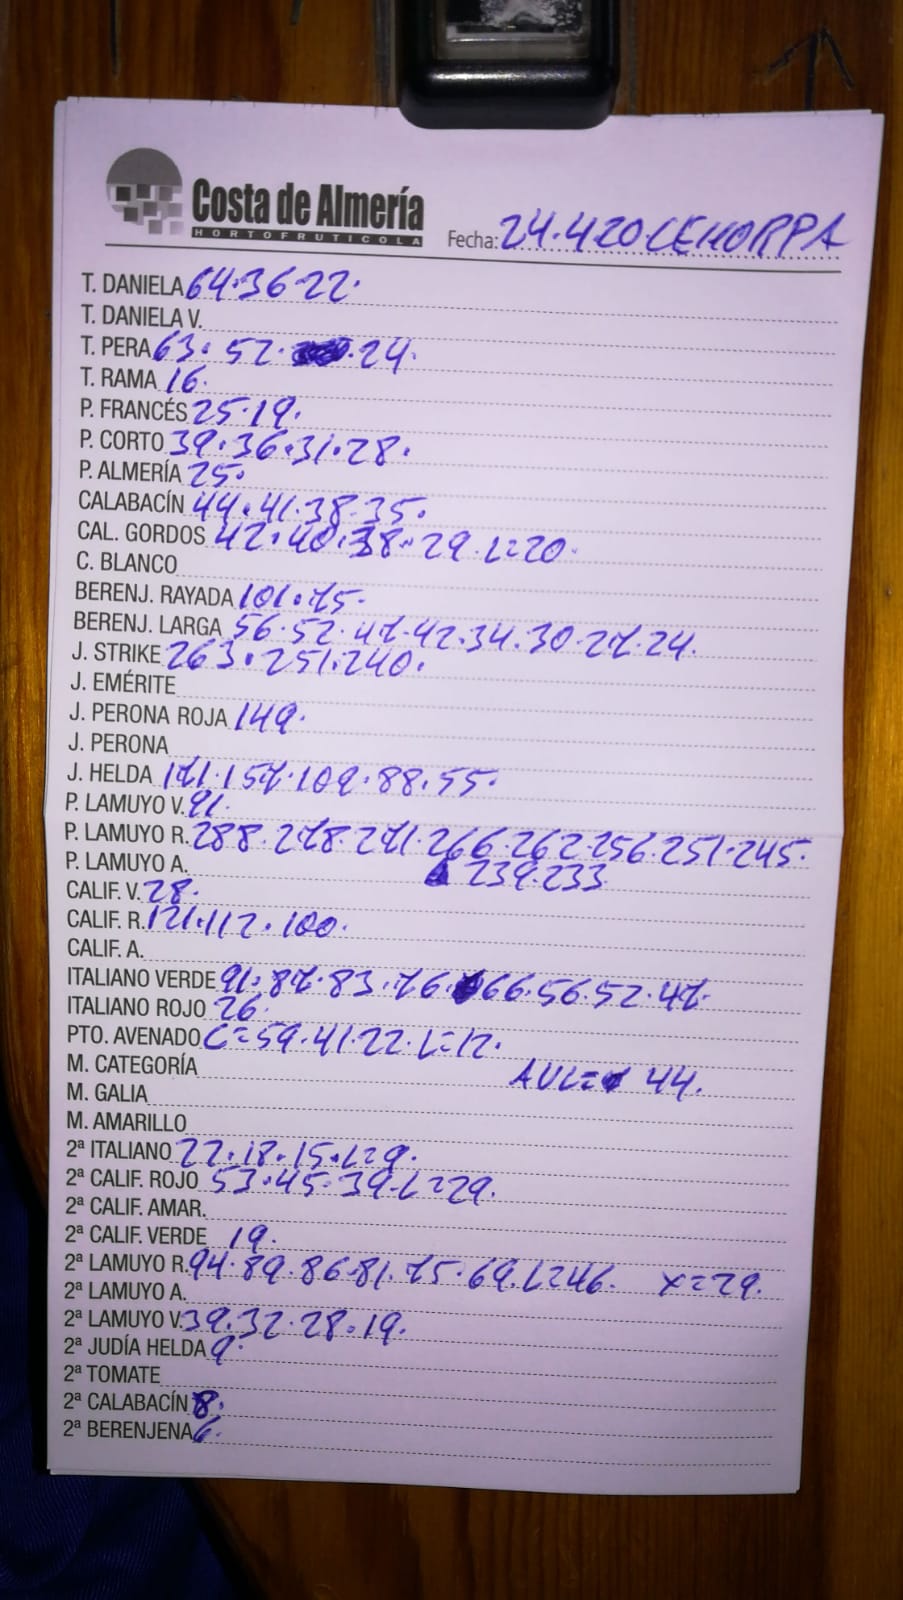 Costa de Almería
HORTOFRUTICOLA
Fecha: 24.4.20 CEHORPA
T. DANIELA 64.36.22.
T. DANIELA V.
T. PERA 63. 52. 24.
T. RAMA 16.
P. FRANCÉS 25.19.
P. CORTO 39.36.31.28.
P. ALMERÍA 25.
CALABACÍN 44.41.38.35.
CAL. GORDOS 42.40.38.29.L=20.
C. BLANCO
BERENJ. RAYADA 101.75.
BERENJ. LARGA 56.52.47.42.34.30.27.24.
J. STRIKE 263.251.240.
J. EMÉRITE
J. PERONA ROJA 149.
J. PERONA
J. HELDA 171.157.109.88.55.
P. LAMUYO V. 91.
P. LAMUYO R. 288.278.271.266.262.256.251.245.
239.233
P. LAMUYO A.
CALIF. V. 28.
CALIF. R. 121.112.100.
CALIF. A.
ITALIANO VERDE 91.87.83.76.66.56.52.47.
ITALIANO ROJO 26.
PTO. AVENADO C=59.41.22.L=12.
M. CATEGORÍA AVL= 44.
M. GALIA
M. AMARILLO
2ª ITALIANO 22.18.15.L=9.
2ª CALIF. ROJO 53.45.39.L=29.
2ª CALIF. AMAR.
2ª CALIF. VERDE 19.
2ª LAMUYO R. 94.89.86.81.75.69.L=46. X=29.
2ª LAMUYO A.
2ª LAMUYO V. 39.32.28.19.
2ª JUDÍA HELDA 9.
2ª TOMATE
2ª CALABACÍN 8.
2ª BERENJENA 6.